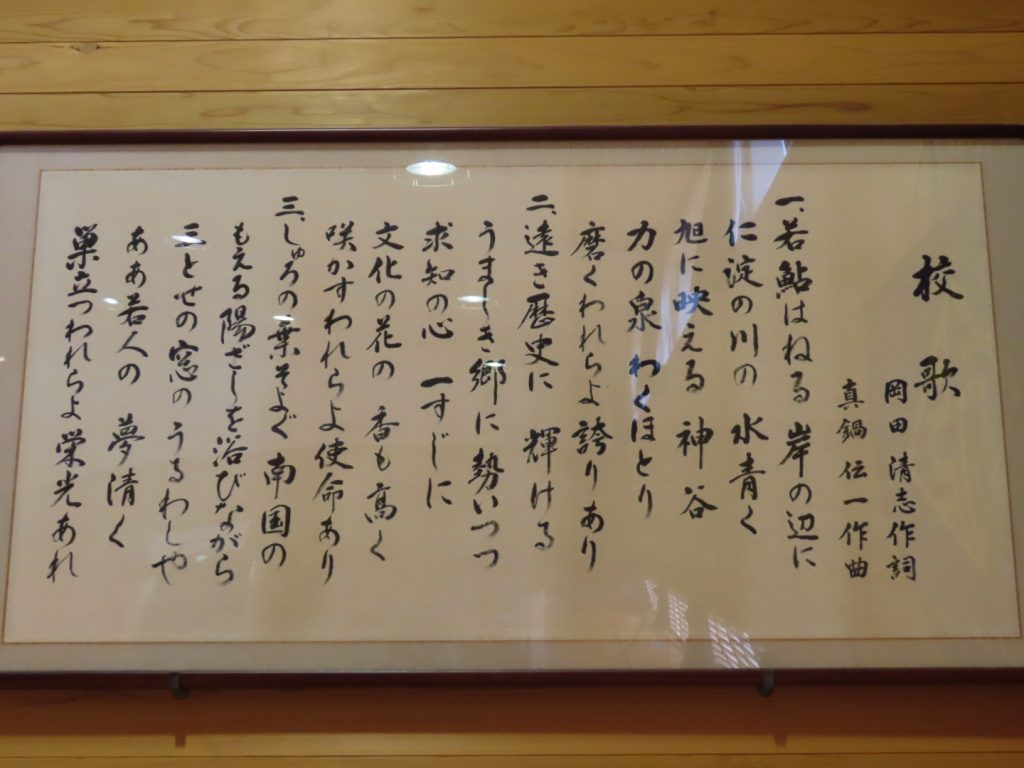 校歌
岡田 清志作詞
真鍋 伝一作曲
一、若鮎はねる 岸の辺に
仁淀の川の 水青く
旭に映える 神谷
力の泉 わくほとり
磨くわれらよ誇りあり
二、遠き歴史に 輝ける
うましき郷に勢いつつ
求知の心 一すじに
文化の花の 香も高く
咲かすわれらよ使命あり
三、しゅろの葉そよぐ 南国の
もえる陽ざしを浴びながら
三とせの窓の うるわしや
ああ若人の 夢清く
巣立つわれらよ栄光あれ